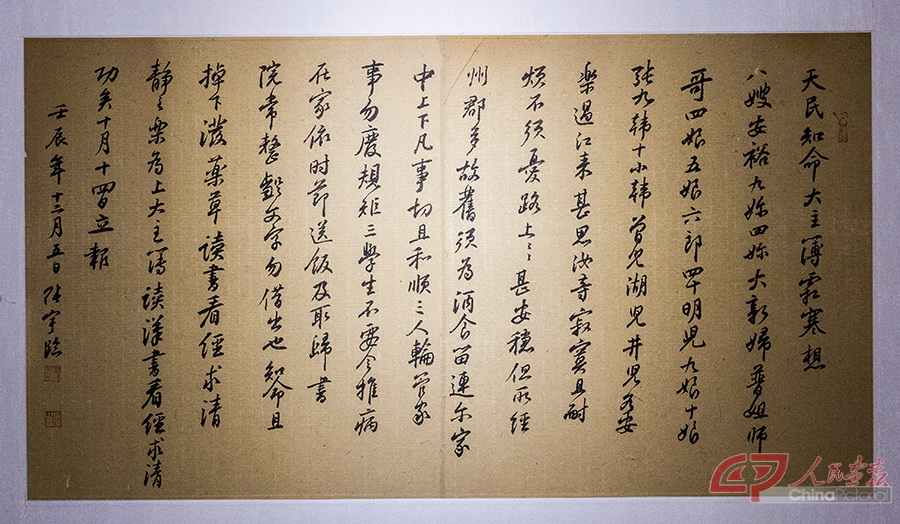 天民知命大主簿霜寒想
八嫂安裕九妳四妳大新婦普姐师
哥四娘五娘六郎四十明児九娘十娘
張九韩十小韩曾児湖児井児各安
樂過江来甚思汝等寂寞且耐
煩不須憂路上〻甚安穩但所經
州郡多故舊須為酒食留連尔家
中上下凡事切且和順三人輪管家
事勿廢規矩三學生不要令推病
在家依时節送飯及取歸書
院常整齪文字勿借出也知命且
掉下潑藥草讀書看經求清
静之樂为上大主簿讀漢書看經求清
功矣十月十四日立報
壬辰年十二月五日 陈宇臨
人民画报
ChinaPictorial